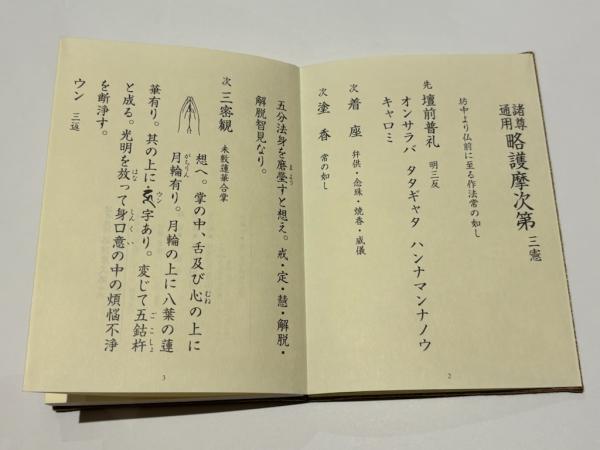 諸尊
通用 略護摩次第 三憲
坊中より仏前に至る作法常の如し
先 壇前普礼 明三反
オンサラバ タタギャタ ハンナマンナノウ
キャロミ
次 着座 弁供・念珠・焼香・威儀
次 塗香 常の如し
2
五分法身を磨瑩すと想え。戒・定・慧・解脱・
まよう
解脱智見なり。
次 三密観 未敷蓮華合掌
想へ。掌の中、舌及び心の上に
むね
月輪有り。月輪の上に八葉の蓮
がちりん
華有り。其の上に字あり。変じて五鈷杵
ウン ごこしょ
と成る。光明を放って身口意の中の煩悩不浄
はな しんくい
を断浄す。
ウン 三返
3